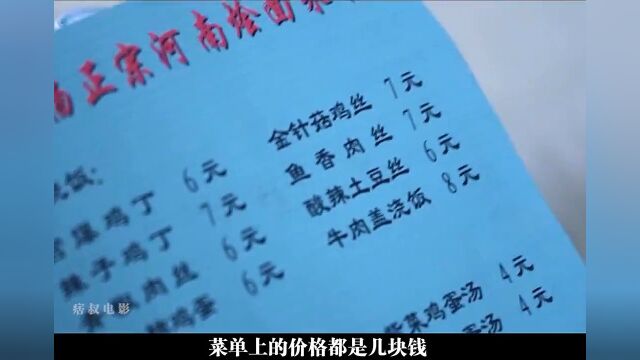 正宗河南烩面
金针菇鸡丝 7元
鱼香肉丝 7元
酸辣土豆丝 6元
牛肉盖浇饭 8元
爆鸡丁 6元
子鸡丁 7元
肉丝 6元
鸡蛋 6元
紫菜鸡蛋汤 4元
鸡蛋汤 4元
痞叔电影
菜单上的价格都是几块钱